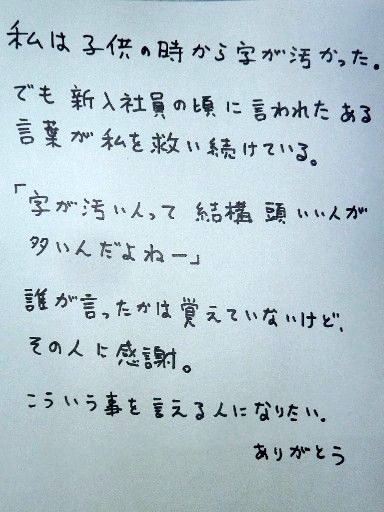 私は子供の時から字が汚かった。
でも新入社員の頃に言われたある
言葉が私を救い続けている。
「字が汚い人って結構頭いい人が
多いんだよねー」
誰が言ったかは覚えていないけど、
その人に感謝。
こういう事を言える人になりたい。
ありがとう